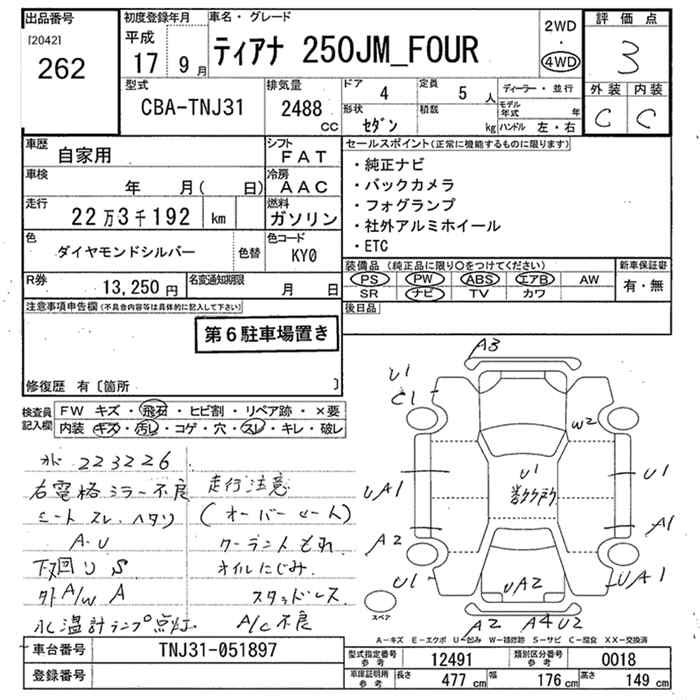 出品番号
[2042]
262
初度登録年月
平成
17 9月
車名・グレード
ティアナ 250JM_FOUR
2WD
・
4WD
評価点
3
外装 内装
C C
型式
CBA-TNJ31
排気量
2488
cc
ドア 4
定員 5人
形状 セダン
積数 kg
ディーラー・並行
モデル年式 年
ハンドル 左・右
車歴
自家用
シフト
FAT
車検
年 月( 日)
冷房
AAC
走行
22万3千192 km
燃料
ガソリン
色
ダイヤモンドシルバー
色替
色コード
KY0
R券
13,250円
名変通知期限
月 日
セールスポイント(正常に機能するものに限ります)
・純正ナビ
・バックカメラ
・フォグランプ
・社外アルミホイール
・ETC
装備品(純正品に限り○をつけてください)
PS PW ABS エアB AW
SR ナビ TV カワ
新車保証書
有・無
後日品
注意事項申告欄(不具合内容等は具体的に記入して下さい)
第6駐車場置き
修復歴 有〔箇所 〕
検査員記入欄
FW キズ・飛石・ヒビ割・リペア跡・×要
内装 キズ・汚レ・コゲ・穴・スレ・キレ・破レ
223226
右電格ミラー不良
シートスレ、ヘタリ
A・U
下回りS
外A/W A
水温計ランプ点灯
走行注意
(オーバーヒート)
クーラントもれ
オイルにじみ
スタッドレス
A/C不良
A3
U1
C1
W2
U1
UA1
U1
A2
A1
U1
UA2
UA1
A2
A4 U2
スペア
A-キズ E-エクボ U-凹み W-補修跡 S-サビ C-腐食 XX-交換済
車台番号
TNJ31-051897
登録番号
型式指定番号 参考 12491
類別区分番号 参考 0018
車庫証明用 参考 長さ 477 cm 幅 176 cm 高さ 149 cm